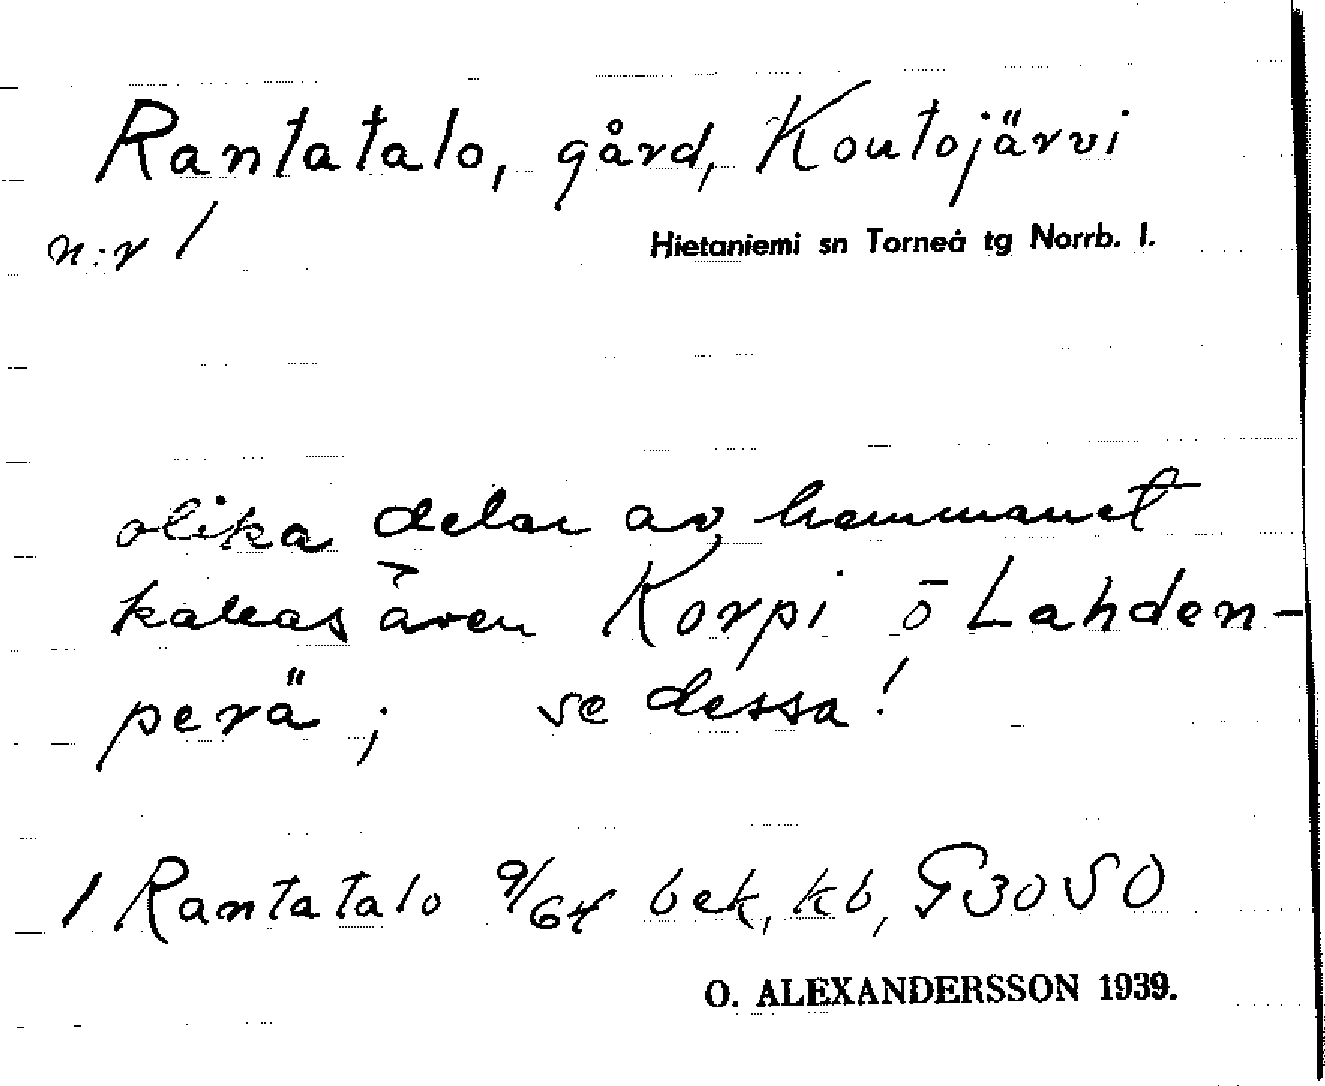 Rantatalo, gård, Koutojärvi
n:r 1
Hietaniemi sn Torneå tg Norrb. l.
olika delar av hemmanet
kallas även Korpi o Lahden-
perä; se dessa!
1 Rantatalo 9/64 bek, kb, G30S0
O. ALEXANDERSSON 1939.